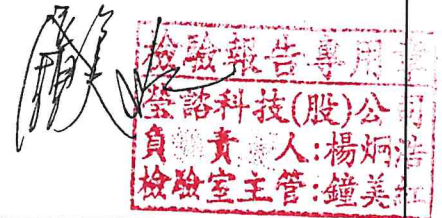 檢驗報告專用章
瑩諮科技(股)公司
負責人:楊炳浩
檢驗室主管:鐘美紅